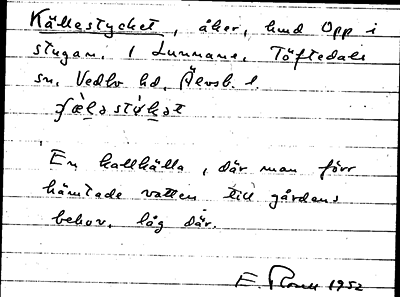 Källestycket, åker, hmd Opp i
stugan. 1 Lunnane, Töftedals
sn. Vedbo hd, Älvsb. l.
En kallkälla, där man förr
hämtade vatten till gårdens
behov, låg där.
E. 1952